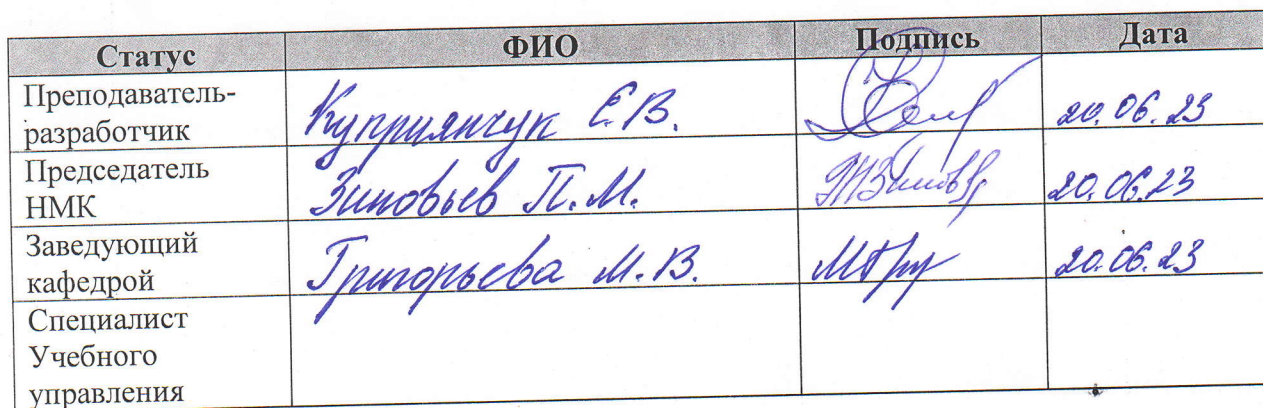 Статус ФИО Подпись Дата
Преподаватель-
разработчик Куприянчук Е.В. 20.06.23
Председатель
НМК Зиновьев П.М. 20.06.23
Заведующий
кафедрой Григорьева М.В. 20.06.23
Специалист
Учебного
управления